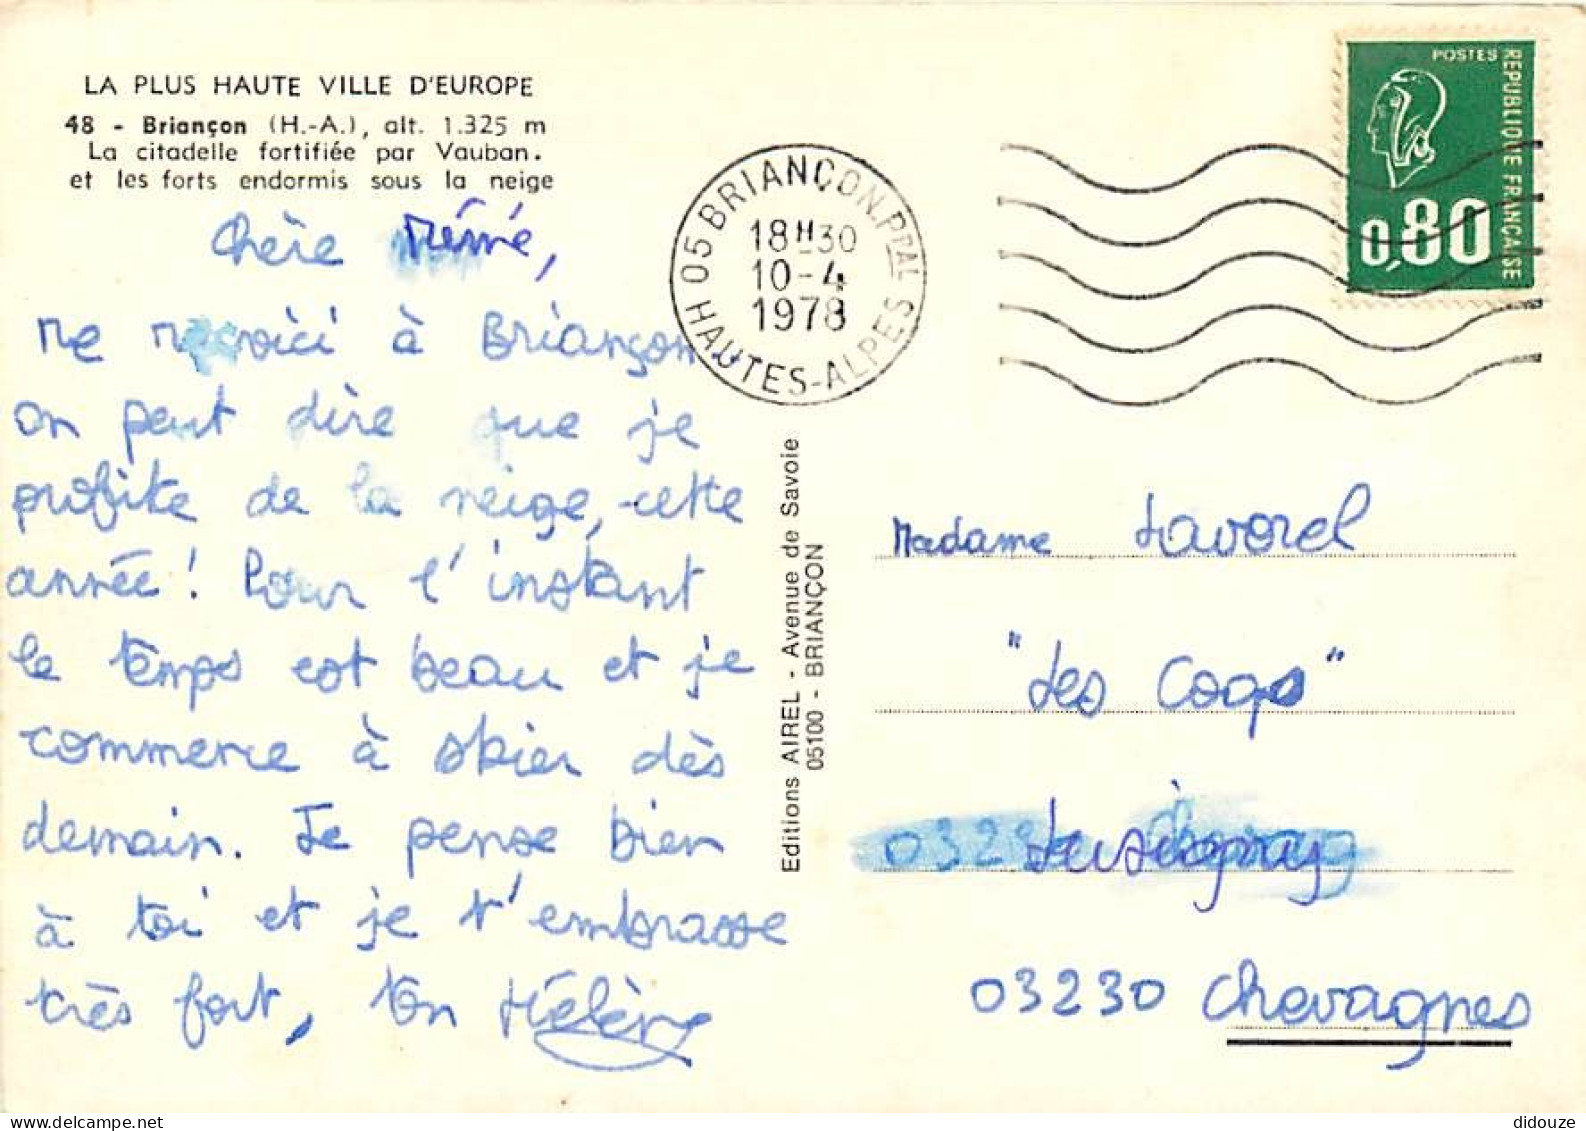 LA PLUS HAUTE VILLE D'EUROPE
48 - Briançon (H.-A.), alt. 1.325 m
La citadelle fortifiée par Vauban.
et les forts endormis sous la neige
Chère Mémé,
Me revoici à Briançon
on peut dire que je
profite de la neige, cette
année ! Pour l'instant
le temps est beau et je
commence à skier dès
demain. Je pense bien
à toi et je t'embrasse
très fort, ton Hélène
Editions AIREL - Avenue de Savoie
05100 - BRIANÇON
05 BRIANÇON PPAL
18H30
10-4
1978
HAUTES-ALPES
POSTES
REPUBLIQUE FRANÇAISE
0,80
Madame Lavorel
"Les Coqs"
Lusigny
03230 Chevagnes
didouze